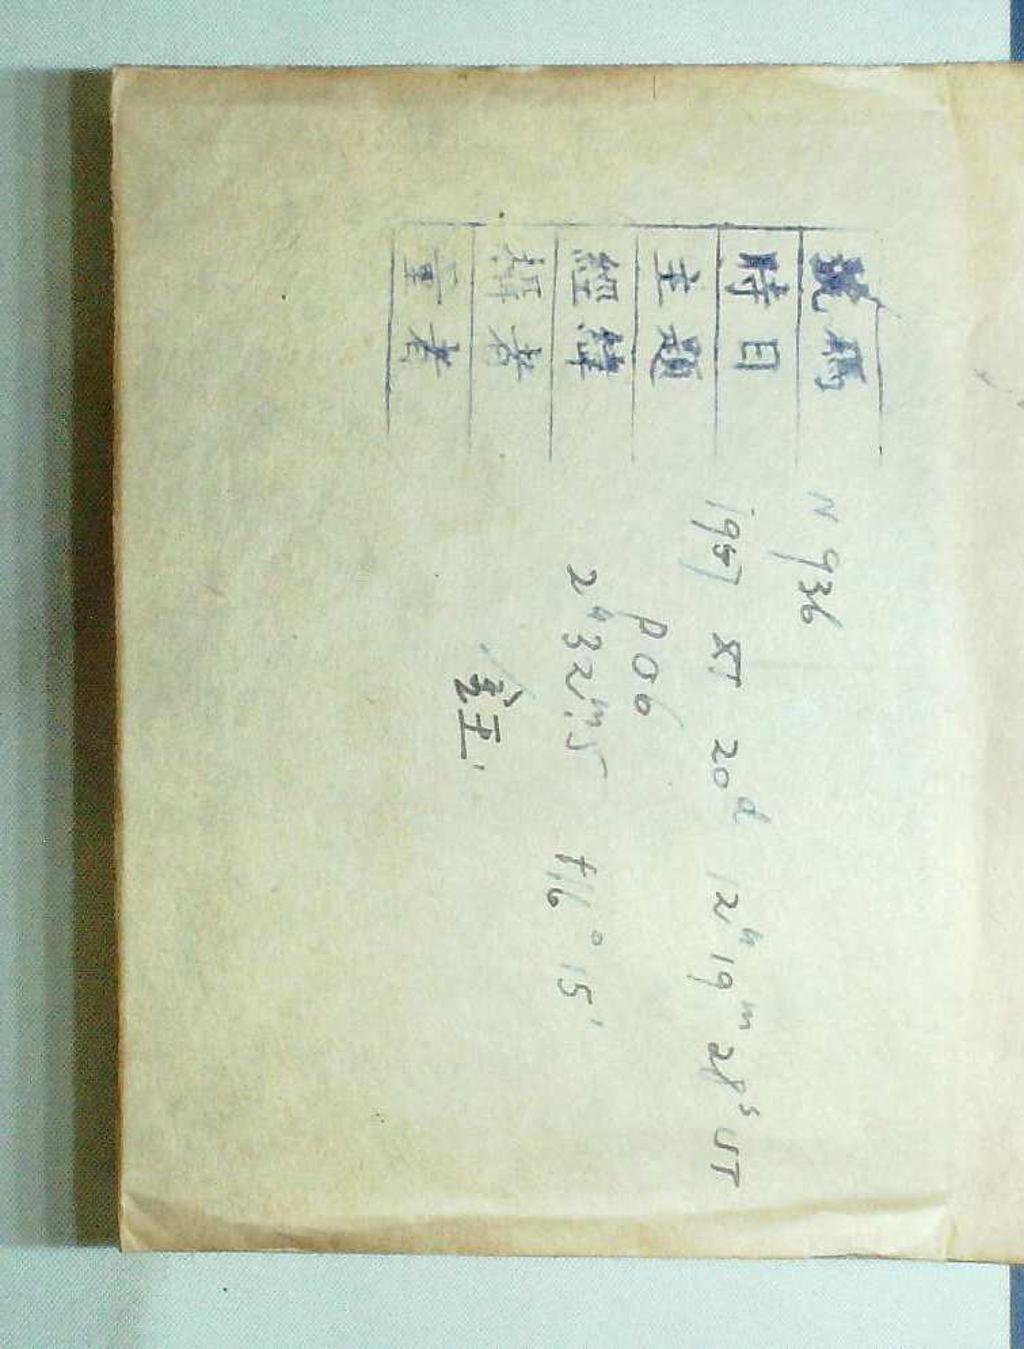 號碼 N 936
時日 1957 XI 20d 12h 19m 28s UT
主題 P06
經緯 2h 32m.5 +16° 15'
者
者